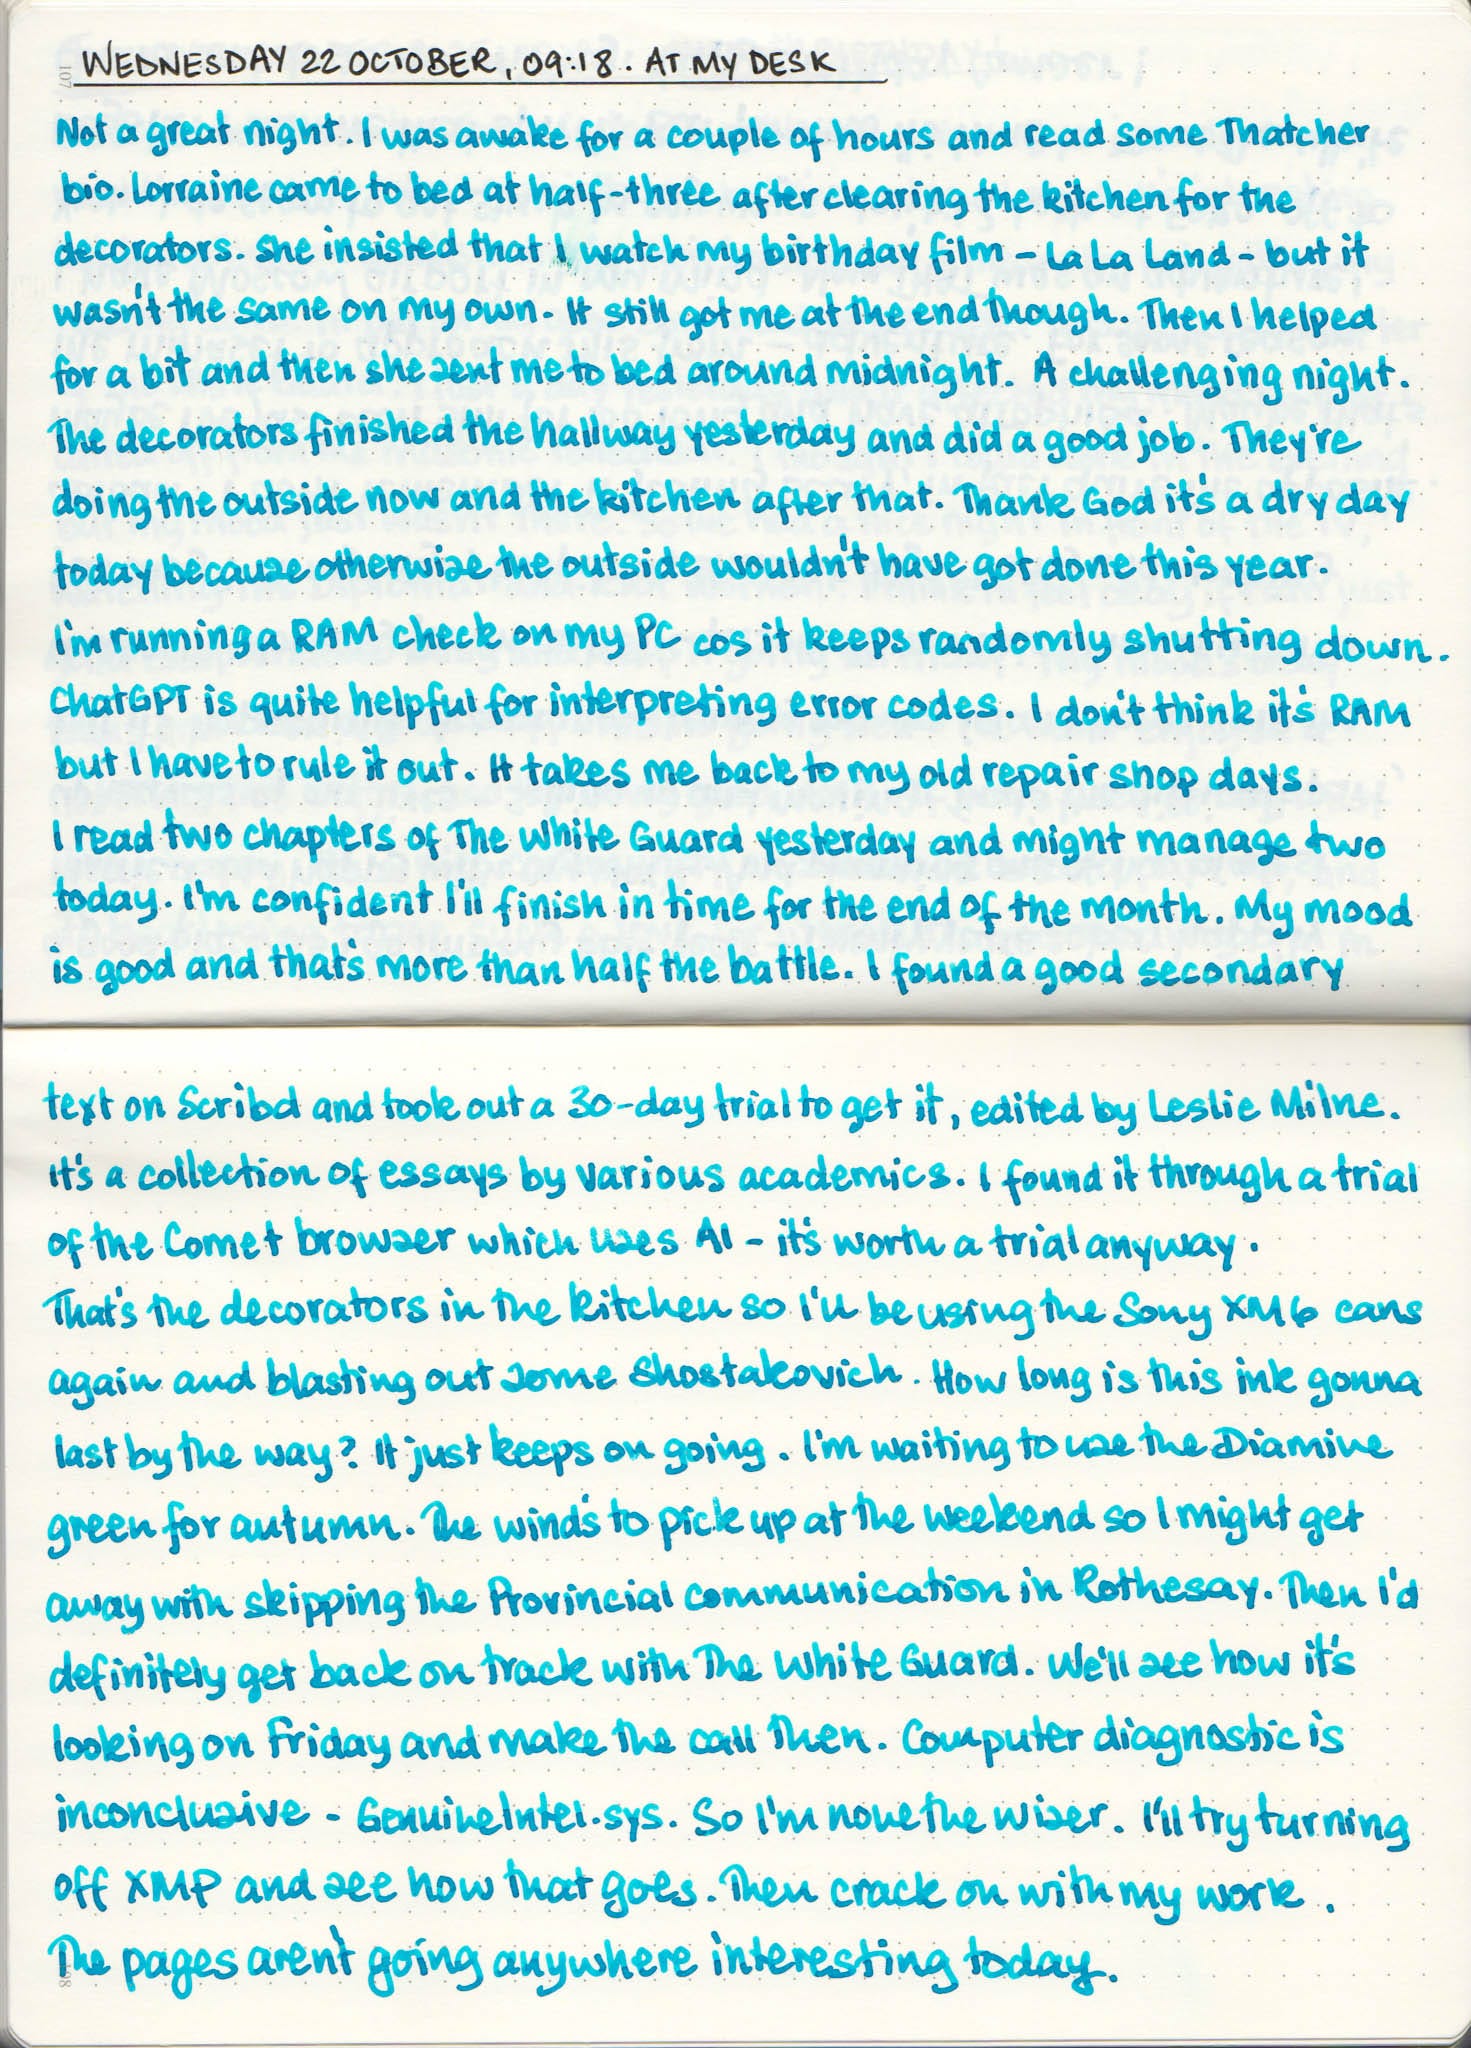 WEDNESDAY 22 OCTOBER, 09:18. AT MY DESK
Not a great night. I was awake for a couple of hours and read some Thatcher
bio. Lorraine came to bed at half-three after clearing the kitchen for the
decorators. She insisted that I watch my birthday film - La La Land - but it
wasn't the same on my own. It still got me at the end though. Then I helped
for a bit and then she sent me to bed around midnight. A challenging night.
The decorators finished the hallway yesterday and did a good job. They're
doing the outside now and the kitchen after that. Thank God it's a dry day
today because otherwise the outside wouldn't have got done this year.
I'm running a RAM check on my PC cos it keeps randomly shutting down.
ChatGPT is quite helpful for interpreting error codes. I don't think it's RAM
but I have to rule it out. It takes me back to my old repair shop days.
I read two chapters of The White Guard yesterday and might manage two
today. I'm confident I'll finish in time for the end of the month. My mood
is good and that's more than half the battle. I found a good secondary
text on Scribd and took out a 30-day trial to get it, edited by Leslie Milne.
It's a collection of essays by various academics. I found it through a trial
of the Comet browser which uses AI - it's worth a trial anyway.
That's the decorators in the kitchen so I'll be using the Sony XM6 cans
again and blasting out some Shostakovich. How long is this ink gonna
last by the way? It just keeps on going. I'm waiting to use the Diamine
green for autumn. The wind's to pick up at the weekend so I might get
away with skipping the Provincial communication in Rothesay. Then I'd
definitely get back on track with The White Guard. We'll see how it's
looking on Friday and make the call then. Computer diagnostic is
inconclusive - GenuineIntel.sys. So I'm none the wiser. I'll try turning
off XMP and see how that goes. Then crack on with my work.
The pages aren't going anywhere interesting today.